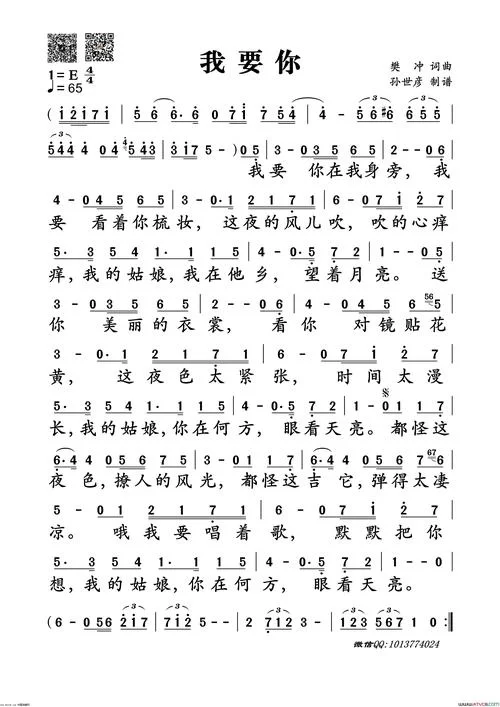 我要你
樊 冲 词曲
1=E 4/4
孙世彦 制谱
♩=65
( i 2 i 7 i | 5 6 6· 6 0 7 i 7 5 4 | 4 - 5 6 #6 6 5 5 |
5 4 4 4 0 4 5 4 5 | 3 i 7 5 - ) 0 5 | 3 - 0 3 5 6 5 | 2 - - 0 6 |
我 要 你在我身旁, 我
4 - 0 4 5 6 5 | 3 - 0· 1 2 1 7 1 | 6 - 0 7 i 2 7 |
要 看着你梳妆, 这夜的风儿吹, 吹的心痒
5· 3 5 4· 1 1 1 5 | 4 - 0 5 7 2 | 1 - - 0 5 |
痒, 我的姑娘, 我在他乡, 望着月亮。 送
3 - 0 3 5 6 5 | 2 - - 0 6 | 4 - 0 4 5 6 5 56 |
你 美丽的衣裳, 看你 对镜贴花
3 - 0· 1 | 2 1 7 1 | 6 - 0 7 i 2 7 |
黄, 这夜色太紧张, 时间太漫
5· 3 5 4· 1 1 1 5 | 4 - 0 5 7 2 | 1 - 0 1 1 7 |
长, 我的姑娘, 你在何方, 眼看天亮。 都怪这
6· 4 0 4 5 6 7 5 | 3 - 0 1 1 7 | 6· 4 0 4 5 6 7 67 |
夜色, 撩人的风光, 都怪这吉它, 弹得太凄
5 - - 0 1 | 2 2 1 7 1 | 6 - 0 7 i 2 7 |
凉。 哦我要唱着歌, 默默把你
5· 3 5 4· 1 1 1 5 | 4 - 0 5 7 2 | 1 - - 0 |
想, 我的姑娘, 你在何方, 眼看天亮。
( 6 - 0 5 6 2 i 7 | 7 i 2 5 - - | 2 7 1 2 3 - | 1 2 3 5 6 7 1 0 :||
微信QQ:1013774024